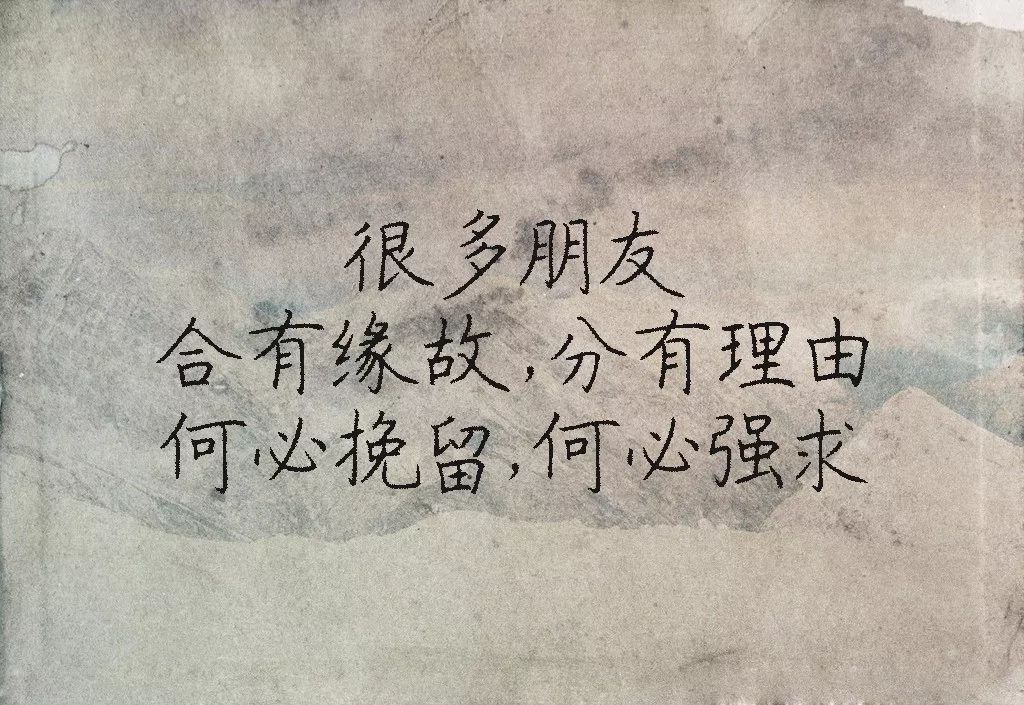 很多朋友
合有缘故,分有理由
何必挽留,何必强求